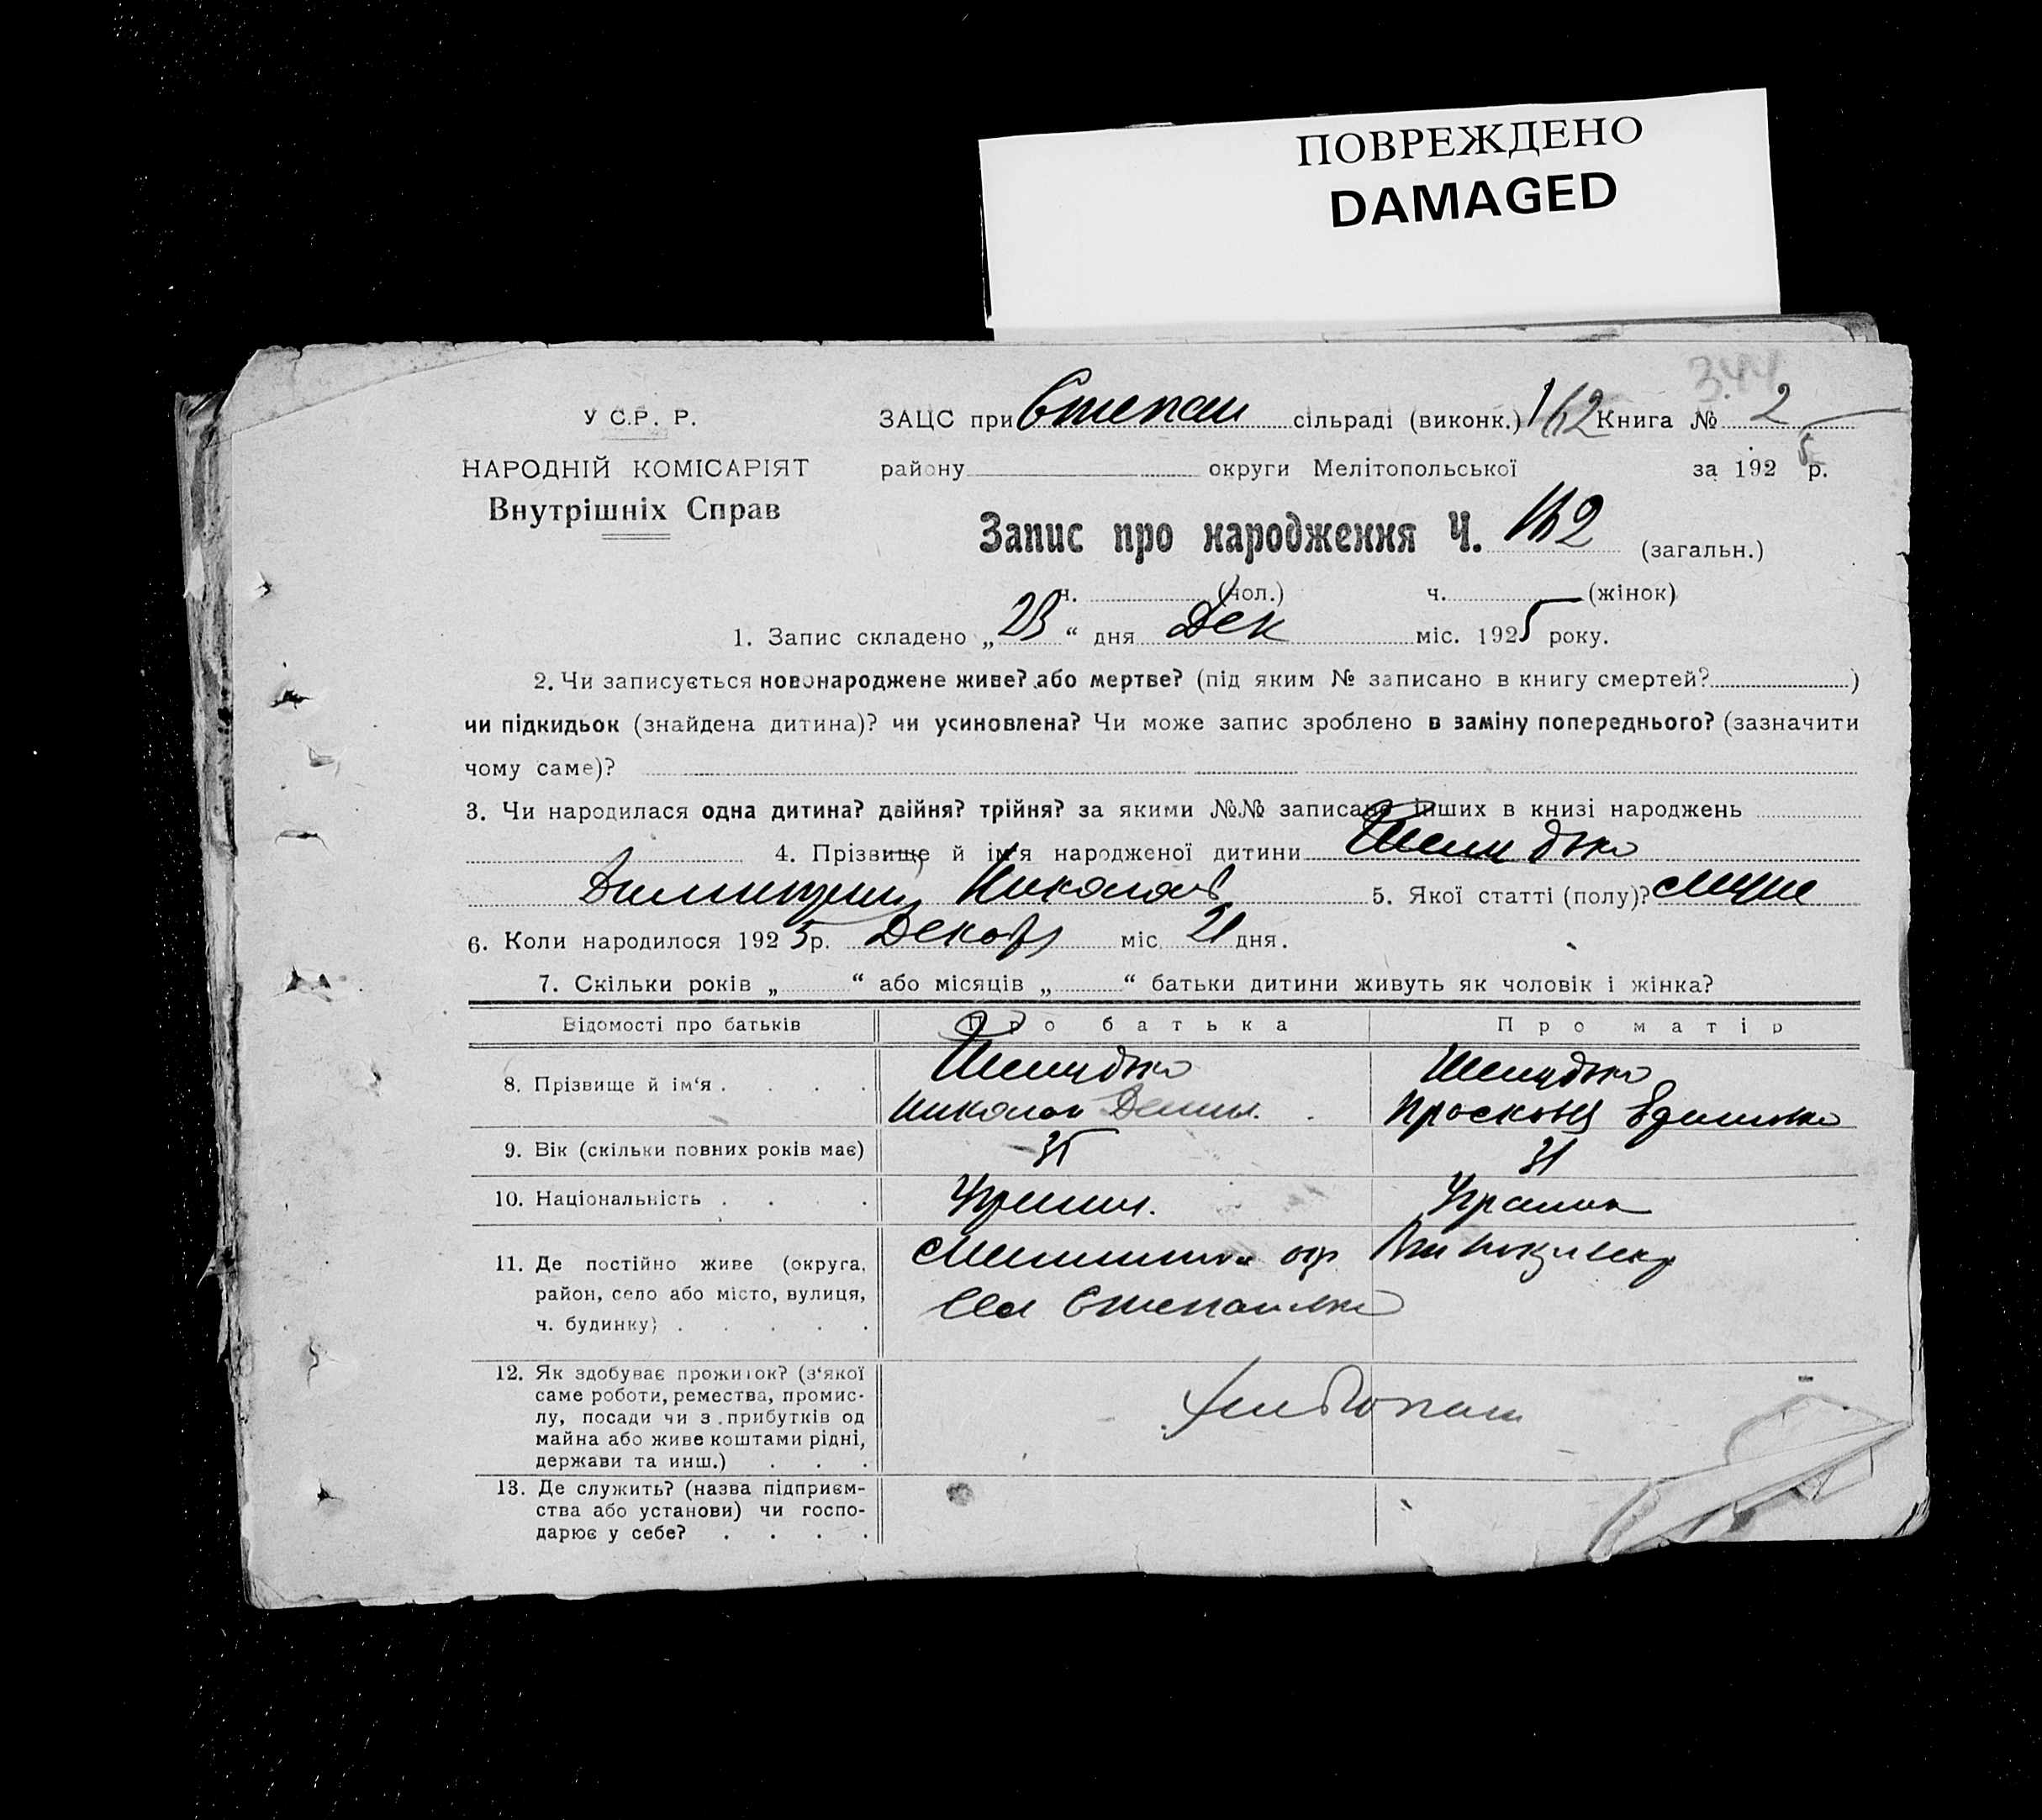 ПОВРЕЖДЕНО
DAMAGED
344
У С.Р. Р. ЗАЦС при Степан сільраді (виконк.) 162 Книга № 2
НАРОДНІЙ КОМІСАРІЯТ району округи Мелітопольської за 1925 р.
Внутрішніх Справ
Запис про народження Ч. 162 (загальн.)
ч. (чол.) ч. (жінок)
1. Запис складено „23“ дня Дек міс. 1925 року.
2. Чи записується новонароджене живе? або мертве? (під яким № записано в книгу смертей? )
чи підкидьок (знайдена дитина)? чи усиновлена? Чи може запис зроблено в заміну попереднього? (зазначити
чому саме)?
3. Чи народилася одна дитина? двійня? трійня? за якими №№ записано інших в книзі народжень
4. Прізвище й ім'я народженої дитини
5. Якої статті (полу)?
6. Коли народилося 1925 р. Декабр міс 21 дня.
7. Скільки років „ “ або місяців „ “ батьки дитини живуть як чоловік і жінка?
Відомості про батьків Про батька Про матір
8. Прізвище й ім‘я . . . .
Николай
9. Вік (скільки повних років має) 35 31
10. Національність . . . .
11. Де постійно живе (округа,
район, село або місто, вулиця,
ч. будинку) . . . . .
12. Як здобуває прожиток? (з‘якої
саме роботи, ремества, промис-
лу, посади чи з прибутків од
майна або живе коштами рідні,
держави та инш.) . . .
Хлебопаш
13. Де служить? (назва підприєм-
ства або установи) чи госпо-
дарює у себе? . . . .